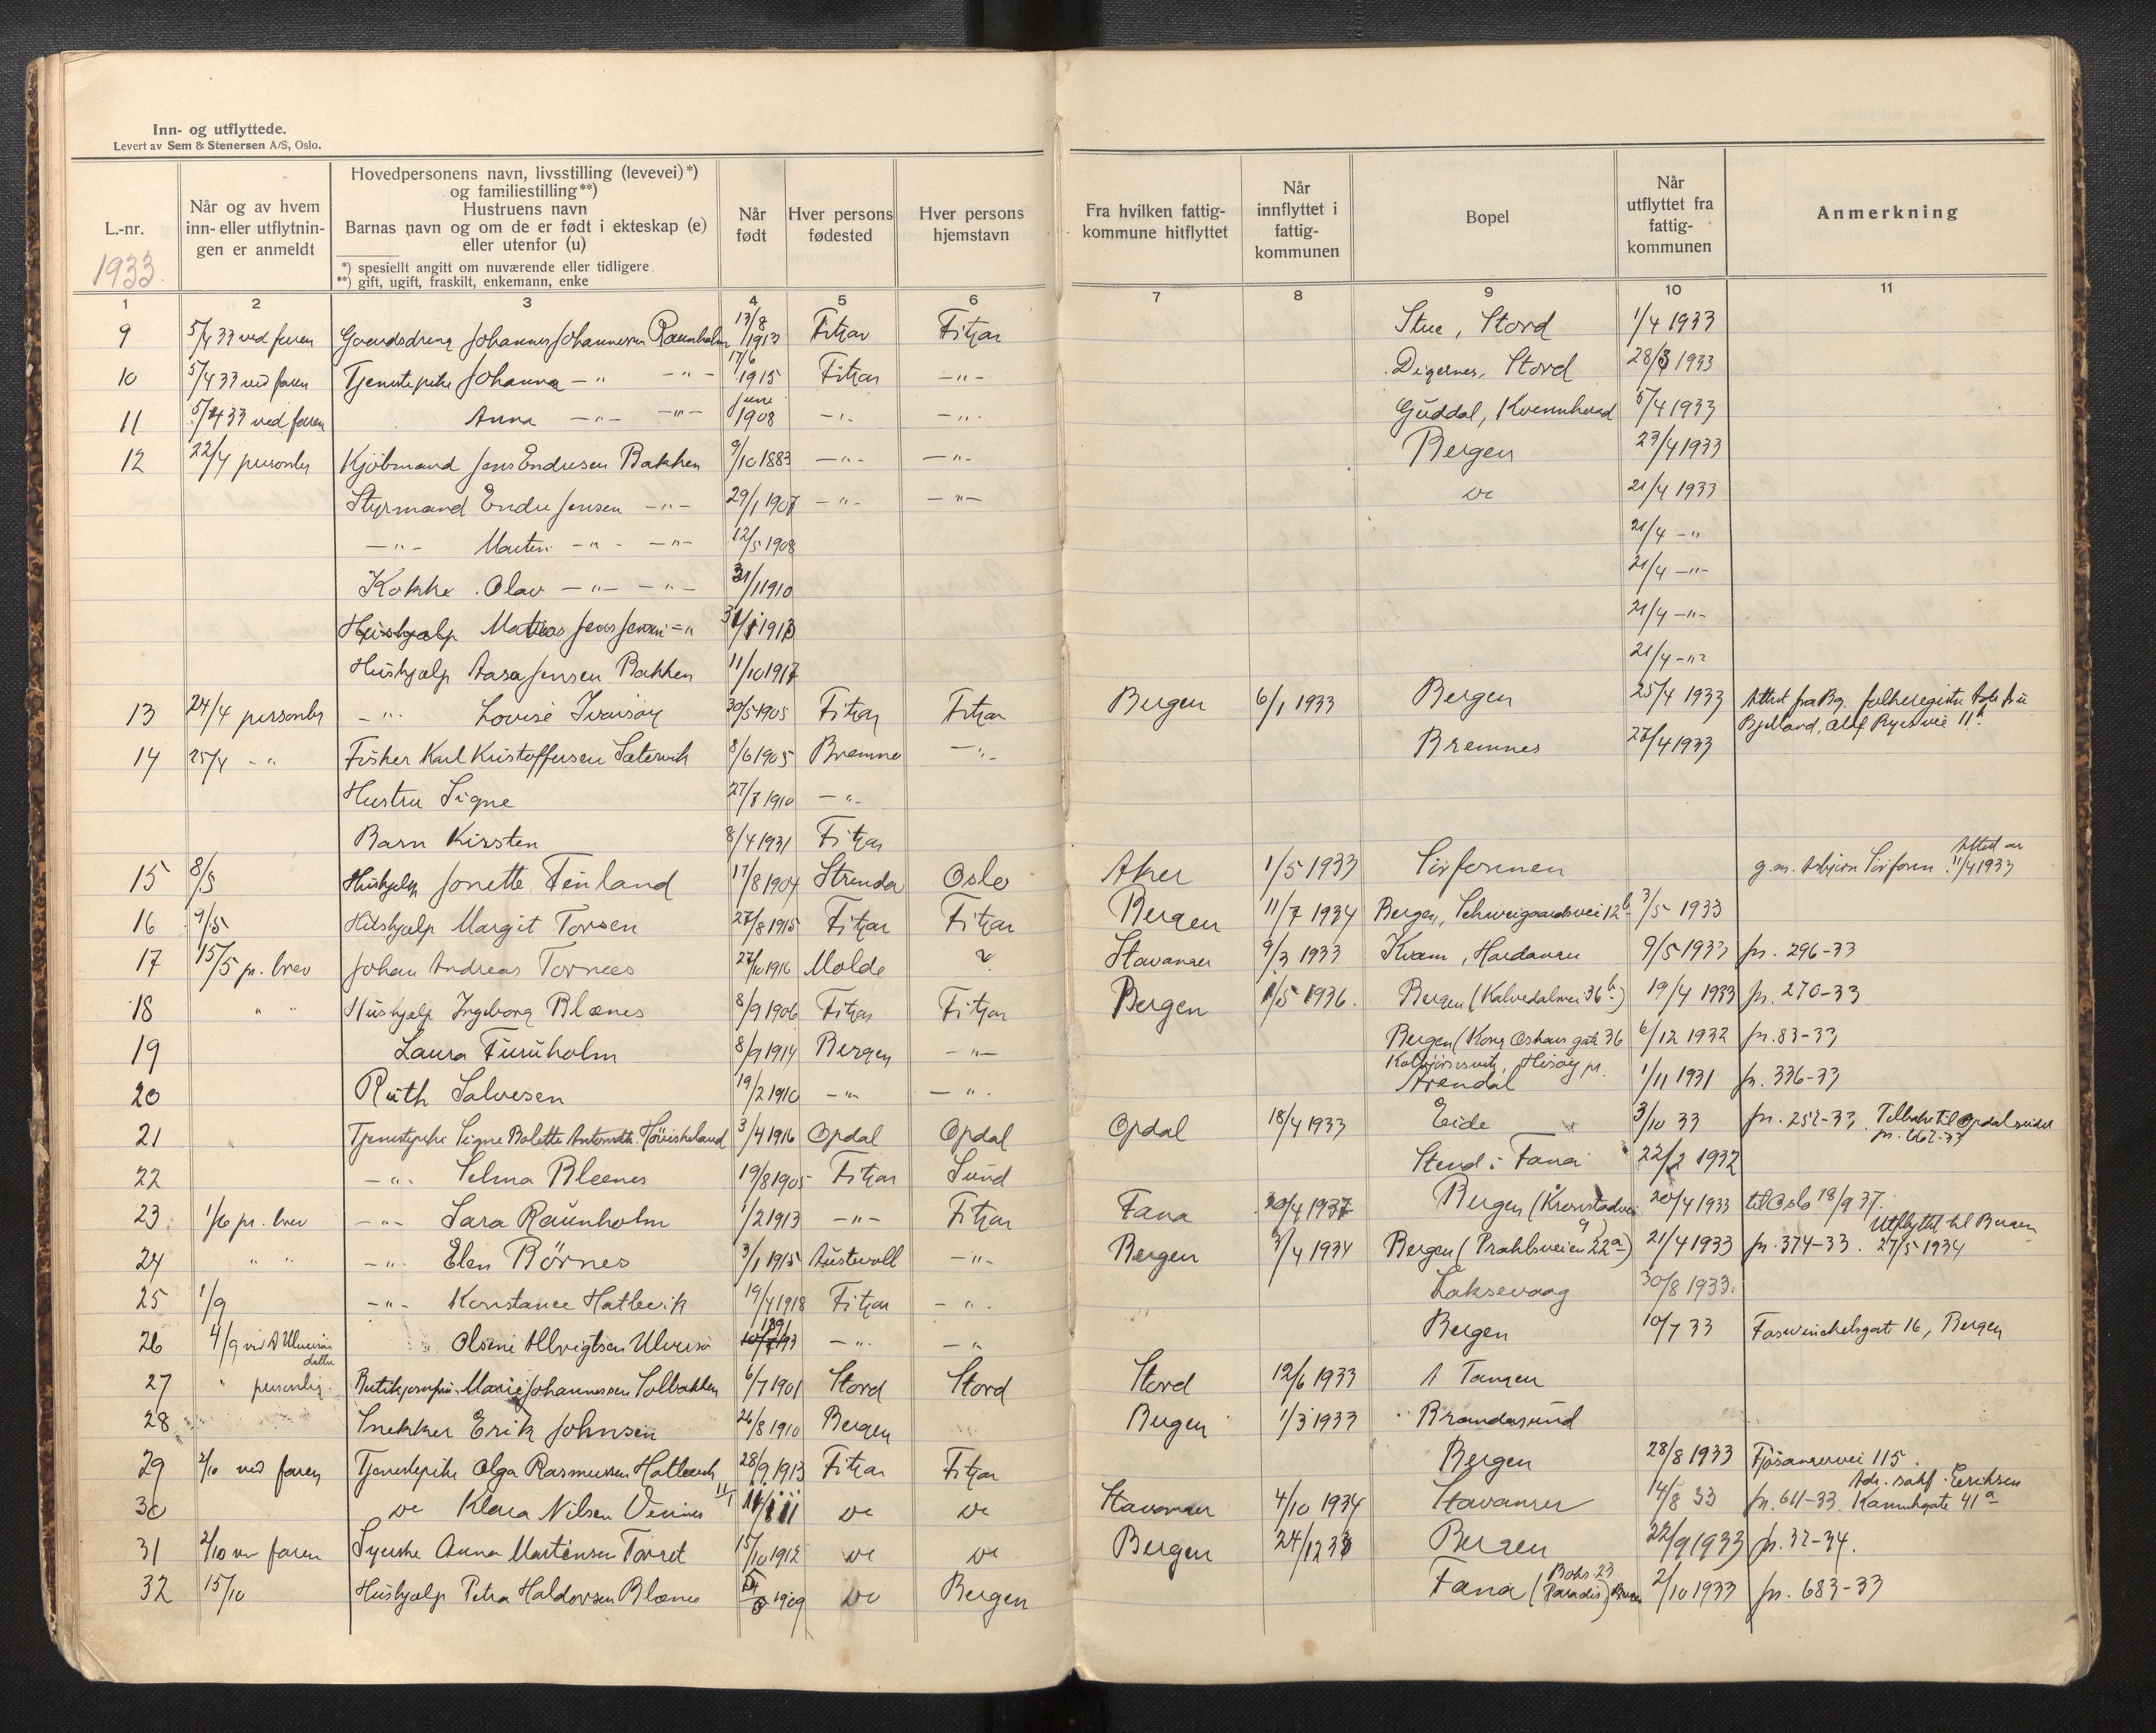 Inn- og utflyttede.
Levert av Sem & Stenersen A/S, Oslo.
L.-nr.
1933.
Når og av hvem
inn- eller utflytnin-
gen er anmeldt
Hovedpersonens navn, livsstilling (levevei) *)
og familiestilling **)
Hustruens navn
Barnas navn og om de er født i ekteskap (e)
eller utenfor (u)
*) spesiellt angitt om nuværende eller tidligere
**) gift, ugift, fraskilt, enkemann, enke
Når
født
Hver persons
fødested
Hver persons
hjemstavn
Fra hvilken fattig-
kommune hitflyttet
Når
innflyttet i
fattig-
kommunen
Bopel
Når
utflyttet fra
fattig-
kommunen
Anmerkning
1 2 3 4 5 6 7 8 9 10 11
9 5/4 33 ved faren Gaardsdreng Johannes Johannesen Raunholm 13/8 1913 Fitjar Fitjar Stue, Stord 1/4 1933
10 5/4 33 ved faren Tjenestepike Johanna -"- -"- 17/6 1915 Fitjar -"- Digernes, Stord 28/3 1933
11 5/4 33 ved faren Anna -"- -"- june 1908 -"- -"- Guddal, Kvennherad 5/4 1933
12 22/4 personlig Kjöbmand Jens Endresen Bakken 9/10 1883 -"- -"- Bergen 23/4 1933
Styrmand Endre Jensen -"- 29/1 1907 -"- -"- do 21/4 1933
-"- Martin -"- -"- 12/5 1908 21/4 -"-
Kokke Olav -"- -"- 31/1 1910 21/4 -"-
Mathias Jens Jensen -"- 1913 21/4 -"-
Hushjælp Aasa Jensen Bakken 11/10 1917 21/4 -"-
13 24/4 personlig -"- Lovise Ivarsöy 30/5 1905 Fitjar Fitjar Bergen 6/1 1933 Bergen 25/4 1933 Attest fra Bg. folkeregister
Bjelland, Olaf Ryes vei 11
14 25/4 -"- Fisker Karl Kristoffersen Sætervik 8/6 1905 Bremnes -"- Bremnes 27/4 1933
Hustru Signe 27/7 1910 -"-
Barn Kirsten 8/4 1931 Fitjar
15 8/5 Hushjelp Jonette Finland 17/8 1904 Strenda Oslo Aker 1/5 1933 Sörfonnen g.m. Asbjörn Sörfonn. Attest av 11/4 1933
16 9/5 Hushjælp Margit Torsen 27/8 1915 Fitjar Fitjar Bergen 11/7 1934 Bergen, Schweigaardsvei 12 b 3/5 1933
17 15/5 pr. brev Johan Andreas Tornes 27/10 1916 Molde ? Stavanger 9/3 1933 Kvam, Hardanger 9/5 1933 jn. 296-33
18 " " Hushjælp Ingeborg Blænes 8/9 1906 Fitjar Fitjar Bergen 1/5 1936. Bergen (Kalvedalsvei 36 b) 19/4 1933 jn. 270-33
19 Laura Furuholm 8/9 1914 Bergen -"- Bergen (Kong Oskars gate 36 6/12 1932 jn. 83-33
20 Ruth Salvesen 19/2 1910 -"- -"- Hisöy pr.
Arendal 1/11 1931 jn. 336-33
21 Tjenestepike Signe Bolette 3/4 1916 Opdal Opdal Opdal 18/4 1933 Eide 3/10 33 jn. 252-33. Tilbake til Opdal
22 -"- Selma Blænes 19/8 1905 Fitjar Sund Stend i Fana 22/2 1932
23 1/6 pr. brev -"- Sara Raunholm 1/2 1913 -"- Fitjar Fana 20/4 1937 Bergen (Kronstadvei 9) 20/4 1933 til Oslo 18/9 37.
24 " " -"- Elen Börnes 3/1 1915 Austevoll -"- Bergen 3/4 1934 Bergen (Prahlsveien 22 a) 21/4 1933 jn. 374-33. Utflyttet til Bergen 27/5 1934
25 1/9 -"- Konstance Hatlevik 19/4 1918 Fitjar -"- Laksevaag 30/8 1933.
26 4/9 ved datter Olsine Alvrigtsen Ulversö -"- -"- Bergen 10/7 33 Foswinckelsgate 16, Bergen
27 " personlig. Marie Johannessen Solbakken 6/7 1901 Stord Stord Stord 12/6 1933 Tangen
28 Snekker Erik Johnsen 26/8 1910 Bergen Bergen 1/3 1933 Brandasund
29 2/10 ved faren Tjenestepike Olga Rasmussen Hatlevik 28/9 1913 Fitjar Fitjar Bergen 28/8 1933 Fjösangervei 115.
30 do Klara Nilsen Vennes do do Stavanger 4/10 1934 Stavanger 14/8 33 jn. 611-33. Adr. Eriksen 41 a
31 2/10 ved faren Syerske Anna Martinsen Torset 15/10 1912 do do Bergen 24/12 33 Bergen 22/9 1933 jn. 32-34.
32 15/10 Hushjælp Petra Haldorsen Blænes 1909 do Bergen Fana (Paradis) Boks 23 Bergen 2/10 1933 jn. 683-33